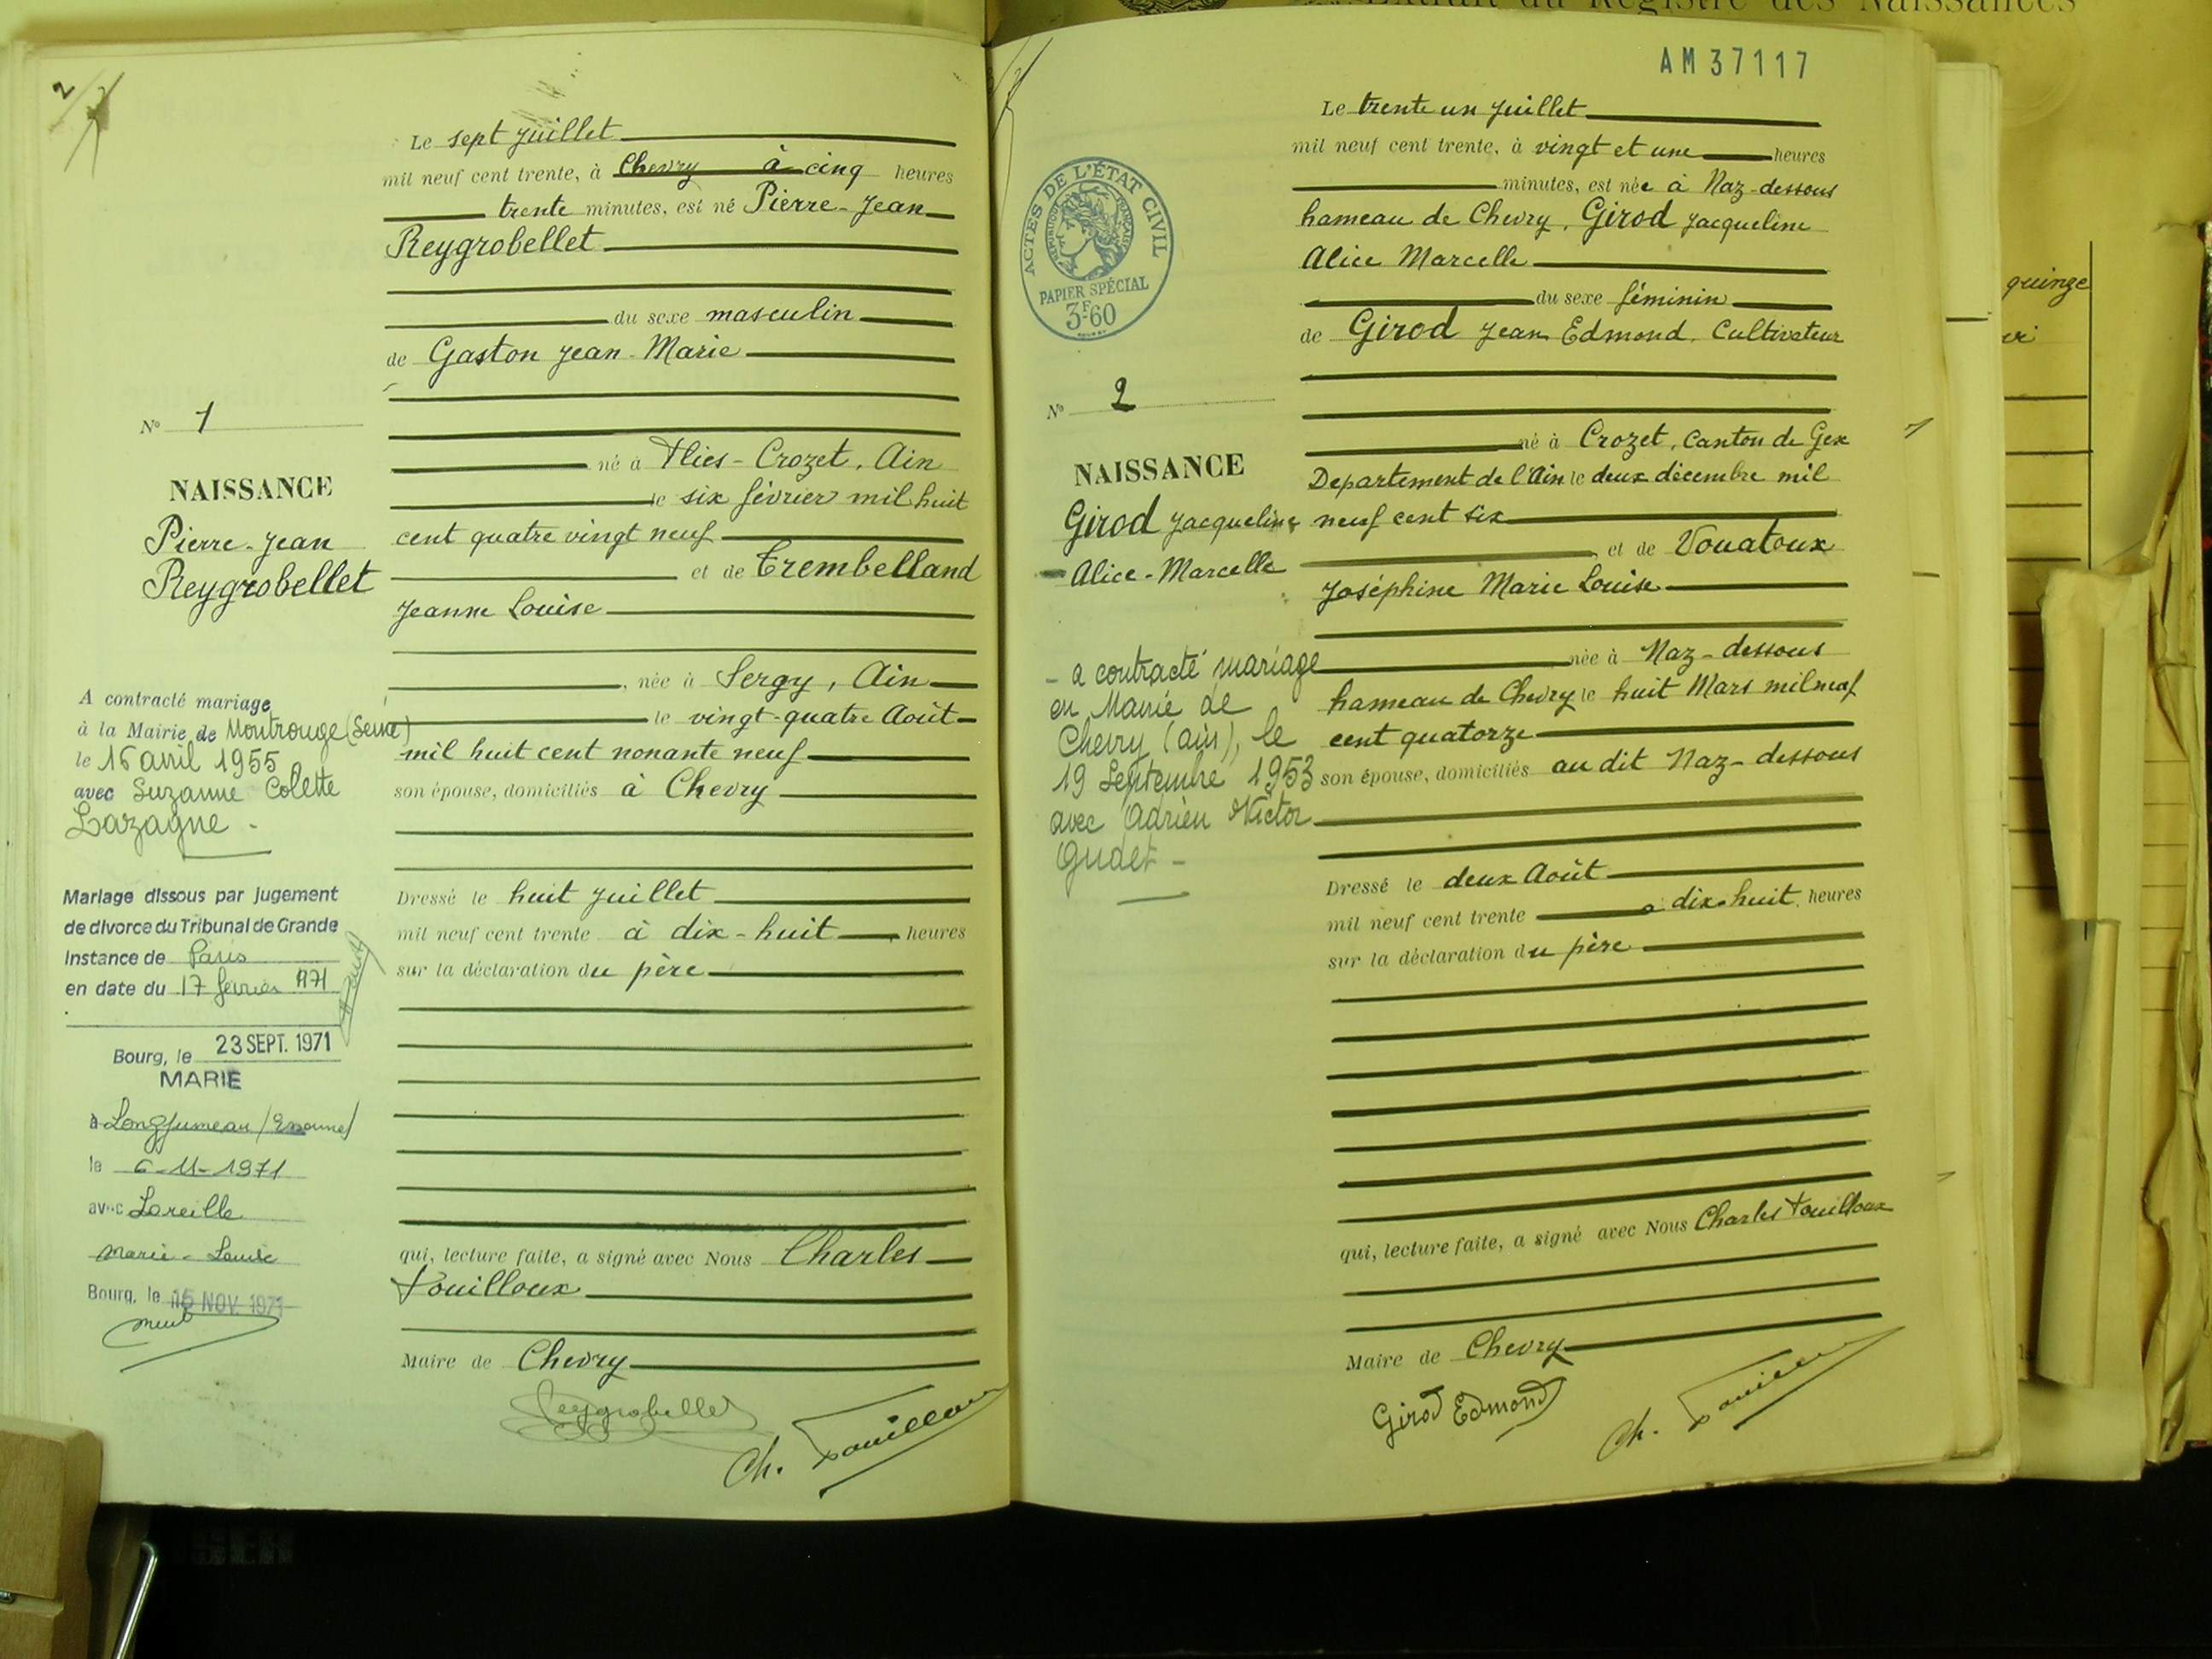 Extrait du Registre des Naissances
2
Le sept juillet
mil neuf cent trente, à Chevry à cinq heures
trente minutes, est né Pierre-Jean
Reygrobellet
du sexe masculin
de Gaston Jean-Marie
né à Flies-Crozet, Ain
le six février mil huit
cent quatre vingt neuf
et de Trembelland
Jeanne Louise
, née à Sergy, Ain
le vingt-quatre Août
mil huit cent nonante neuf
son épouse, domiciliés à Chevry
Dressé le huit juillet
mil neuf cent trente à dix-huit heures
sur la déclaration du père
qui, lecture faite, a signé avec Nous Charles
Fouilloux
Maire de Chevry
Reygrobellet
Ch. Fouilloux
No 1
NAISSANCE
Pierre-Jean
Reygrobellet
A contracté mariage
à la Mairie de Montrouge (Seine)
le 16 avril 1955
avec Suzanne Colette
Lazagne.
Mariage dissous par jugement
de divorce du Tribunal de Grande
Instance de Paris
en date du 17 février 1971
Bourg, le 23 SEPT. 1971
MARIE
à Longjumeau (Essonne)
le 6-11-1971
avec Loreille
Marie-Louise
Bourg, le 16 NOV. 1971
AM 37117
ACTES DE L'ÉTAT CIVIL
RÉPUBLIQUE FRANÇAISE
PAPIER SPÉCIAL
3F60
Le trente un juillet
mil neuf cent trente, à vingt et une heures
minutes, est née à Naz-dessous
hameau de Chevry, Girod Jacqueline
Alice Marcelle
du sexe féminin
de Girod Jean Edmond. Cultivateur
né à Crozet, Canton de Gex
Departement de l'Ain le deux décembre mil
neuf cent six
, et de Vouatoux
Joséphine Marie Louise
, née à Naz-dessous
hameau de Chevry le huit Mars mil neuf
cent quatorze
son épouse, domiciliés au dit Naz-dessous
Dressé le deux Août
mil neuf cent trente à dix-huit heures
sur la déclaration du père
qui, lecture faite, a signé avec Nous Charles Fouilloux
Maire de Chevry
Girod Edmond
Ch. Fouilloux
No 2
NAISSANCE
Girod Jacqueline
Alice-Marcelle
- a contracté mariage
en Mairie de
Chevry (ain), le
19 Septembre 1953
avec Adrien Victor
Gudet -
quinze